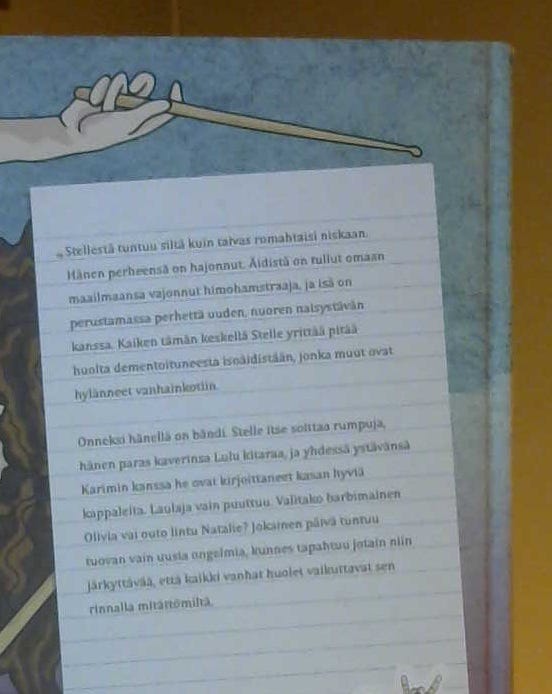 „Stellestä tuntuu siltä kuin taivas romahtaisi niskaan.
Hänen perheensä on hajonnut. Äidistä on tullut omaan
maailmaansa vajonnut himohamstraaja, ja isä on
perustamassa perhettä uuden, nuoren naisystävän
kanssa. Kaiken tämän keskellä Stelle yrittää pitää
huolta dementoituneesta isoäidistään, jonka muut ovat
hylänneet vanhainkotiin.
Onneksi hänellä on bändi. Stelle itse soittaa rumpuja,
hänen paras kaverinsa Lulu kitaraa, ja yhdessä ystävänsä
Karimin kanssa he ovat kirjoittaneet kasan hyviä
kappaleita. Laulaja vain puuttuu. Valitako barbimainen
Olivia vai outo lintu Natalie? Jokainen päivä tuntuu
tuovan vain uusia ongelmia, kunnes tapahtuu jotain niin
järkyttävää, että kaikki vanhat huolet vaikuttavat sen
rinnalla mitättömiltä.